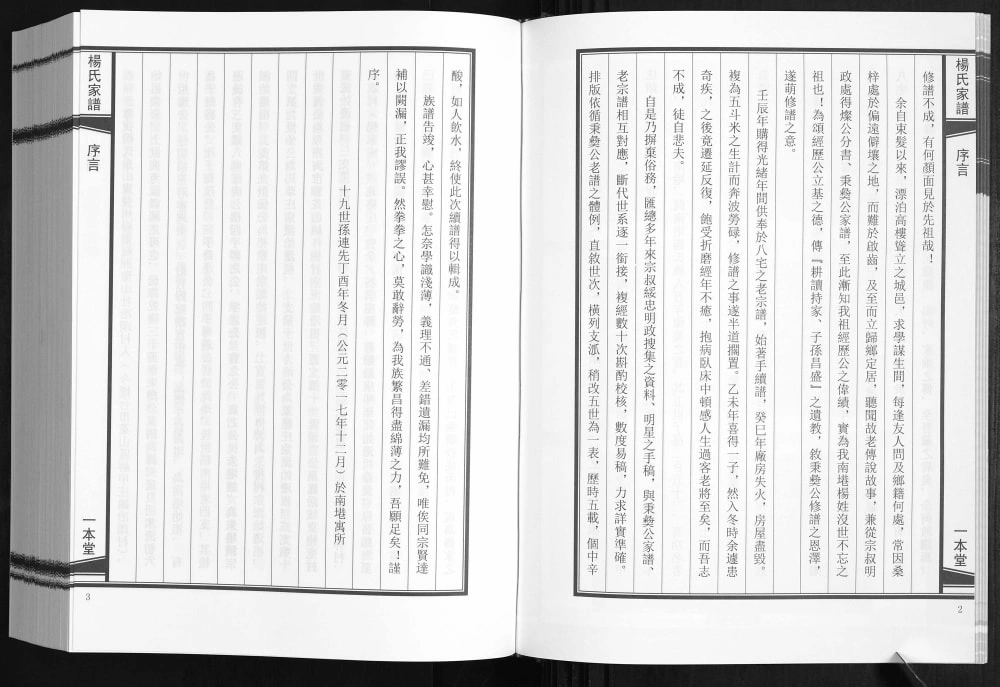 楊氏家譜
序言
一本堂
2
修譜不成，有何顏面見於先祖哉！
余自束髮以來，漂泊高樓聳立之城邑，求學謀生間，每逢友人問及鄉籍何處，常因桑
梓處於偏遠僻壤之地，而難於啟齒，及至而立歸鄉定居，聽聞故老傳說故事，兼從宗叔明
政處得燦公分書、秉彝公家譜，至此漸知我祖經歷公之偉績，實為我南塂楊姓沒世不忘之
祖也！為頌經歷公立基之德，傳『耕讀持家、子孫昌盛』之遺教，敘秉彝公修譜之恩澤，
遂萌修譜之意。
壬辰年購得光緒年間供奉於八宅之老宗譜，始著手續譜，癸巳年廠房失火，房屋盡毀。
複為五斗米之生計而奔波勞碌，修譜之事遂半道擱置。乙未年喜得一子，然入冬時余遽患
奇疾，之後竟遷延反復，飽受折磨經年不癒，抱病臥床中頓感人生過客老將至矣，而吾志
不成，徒自悲夫。
自是乃摒棄俗務，匯總多年來宗叔綏忠明政搜集之資料、明星之手稿，與秉彝公家譜、
老宗譜相互對應，斷代世系逐一銜接，複經數十次斟酌校核，數度易稿，力求詳實準確。
排版依循秉彝公老譜之體例，直敘世次，橫列支派，稍改五世為一表，歷時五載，個中辛
楊氏家譜
序言
一本堂
3
酸，如人飲水，終使此次續譜得以輯成。
族譜告竣，心甚幸慰。怎奈學識淺薄，義理不通、差錯遺漏均所難免，唯俟同宗賢達
補以闕漏，正我謬誤。然拳拳之心，莫敢辭勞，為我族繁昌得盡綿薄之力，吾願足矣！謹
序。
十九世孫連先丁酉年冬月（公元二零一七年十二月）於南塂寓所